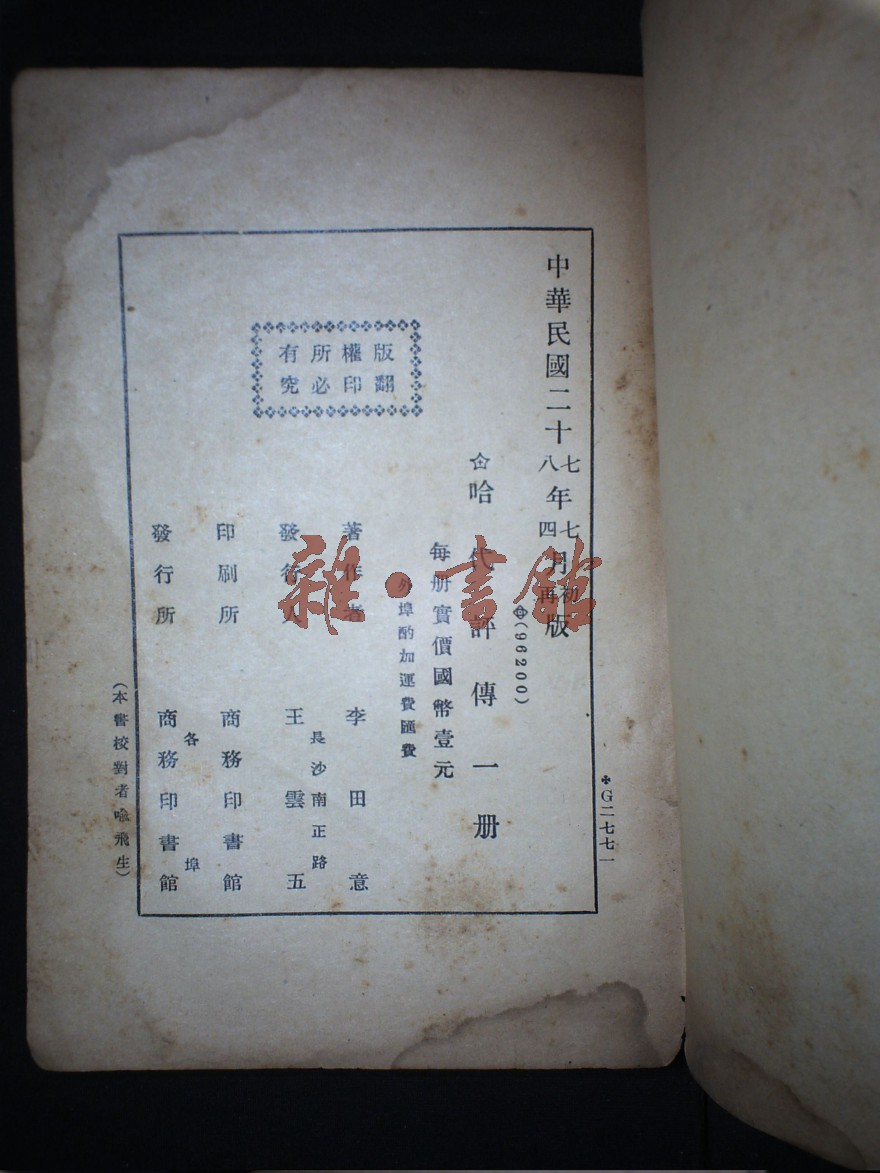 ✠G二七七一
中華民國二十七八年七四月初再版
(96200)
哈代評傳一册
每册實價國幣壹元
外埠酌加運費匯費
版權所有
翻印必究
著作者 李田意
長沙南正路
發行人 王雲五
印刷所 商務印書館
各埠
發行所 商務印書館
(本書校對者喻飛生)
雜·書館